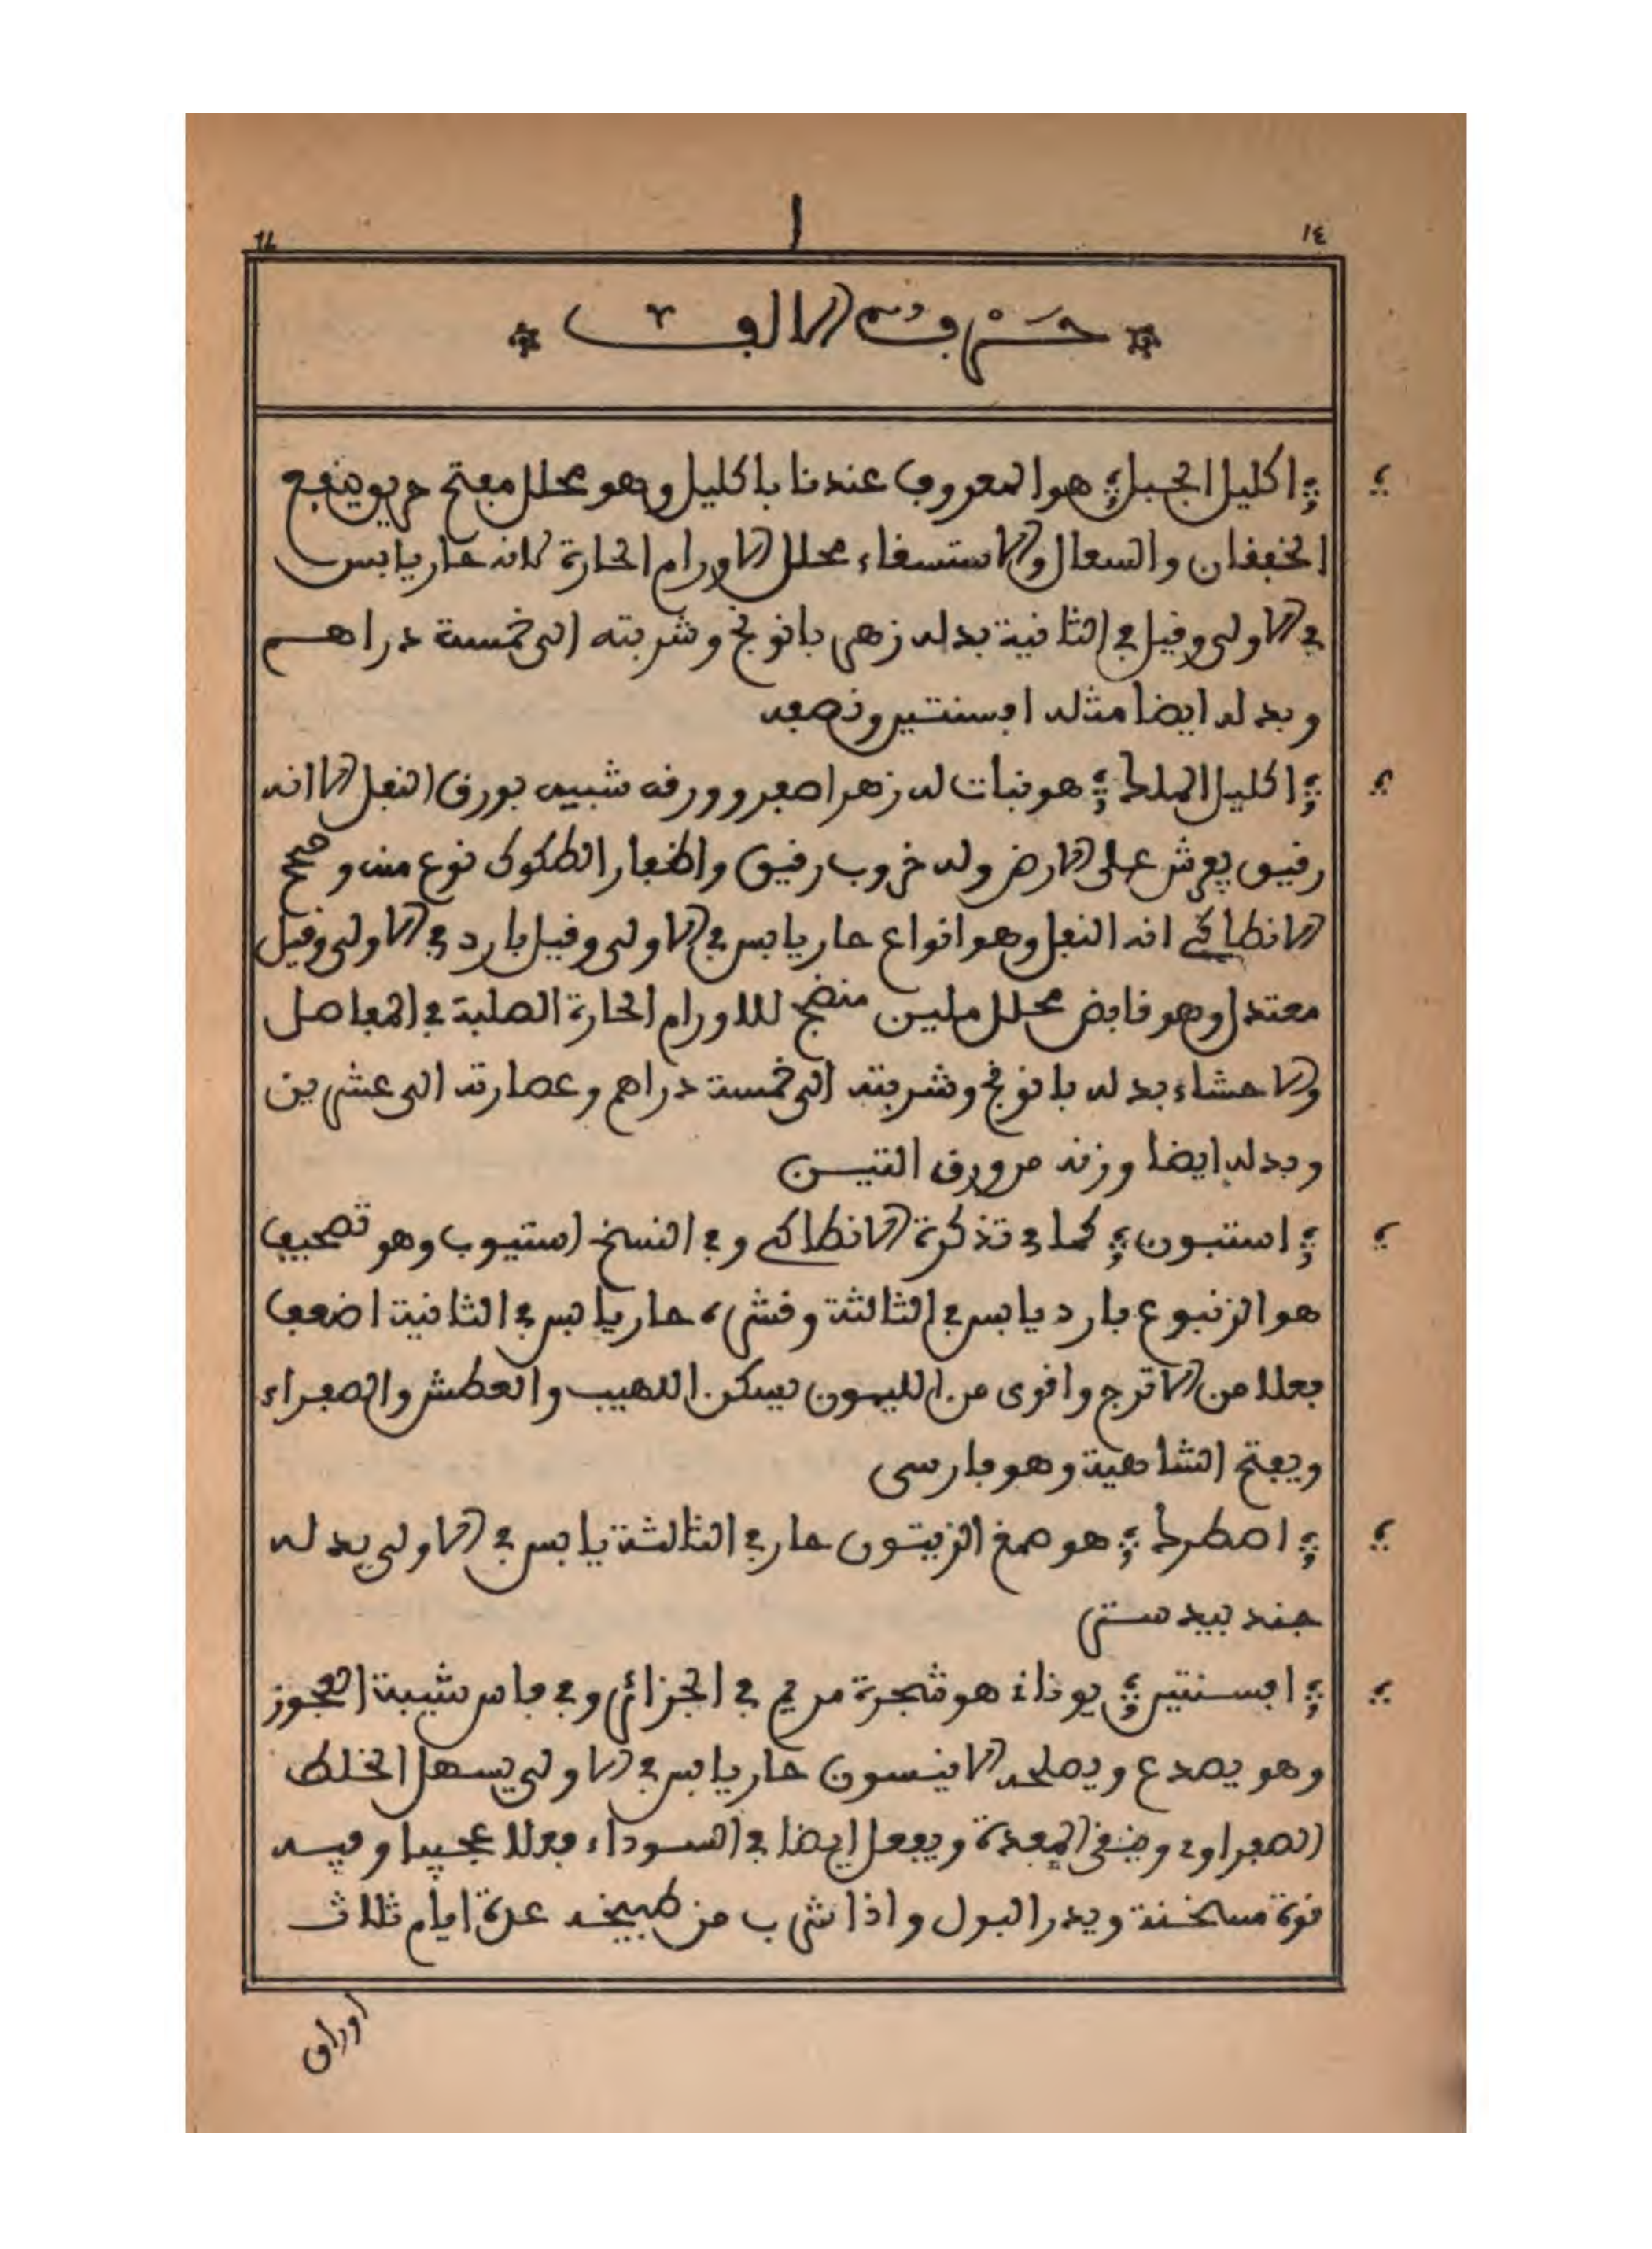 ١٤
ا
* حرف الالف *
؞ اكليل الجبل ؞ هو المعروف عندنا باكليل وهو محلل مفتح حريف ينفع
الخفقان والسعال والاستسقاء محلل الاورام الحارة لانه حار يابس
في الاولى وقيل في الثانية بدله زهر بابونج وشربته الى خمسة دراهم
وبدله ايضا مثله افسنتين ونصفه
؞ اكليل الملك ؞ هو نبات له زهر اصفر وورقه شبيه بورق النفل الا انه
رقيق يعرش على الارض وله خروب رقيق والكوكي نوع منه وصحح
الانطاكي انه النفل وهو انواع حار يابس في الاولى وقيل بارد في الاولى وقيل
معتدل وهو قابض محلل ملين منضج للاورام الحارة الصلبة في المفاصل
والاحشاء بدله بابونج وشربته الى خمسة دراهم وعصارته الى عشرين
وبدله ايضا وزنه من ورق التين
؞ استبون ؞ كما في تذكرة الانطاكي وفي النسخ استيوب وهو تصحيف
هو الزنبوع بارد يابس في الثالثة وقشره حار يابس في الثانية اضعف
فعلا من الاترج واقوى من الليمون يسكن اللهيب والعطش والصفراء
ويفتح الشاهية وهو فارسي
؞ اصطرك ؞ هو صمغ الزيتون حار في الثالثة يابس في الاولى بدله
جند بيدستر
؞ افسنتين ؞ يوناني هو شجرة مريم في الجزائر وفي فاس شيبة العجوز
وهو يصدع ويصلحه الانيسون حار يابس في الاولى يسهل الخلط
الصفراوي وينقي المعدة ويفعل ايضا في السوداء فعلا عجيبا وفيه
قوة مسخنة ويدر البول واذا شرب من طبيخه عدة ايام ثلاث
اوراق